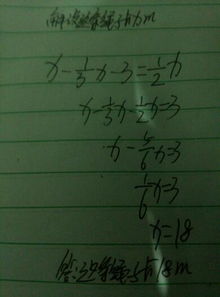 解:设这条绳长xm
x-1/3x-3=1/2x
x-1/3x-1/2x=3
x-5/6x=3
1/6x=3
x=18
答:这条绳长18m